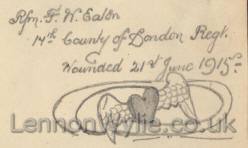 Rfm. F. W. Eaton
14th County of London Regt.
Wounded 21st June 1915.
LennonWylie.co.uk